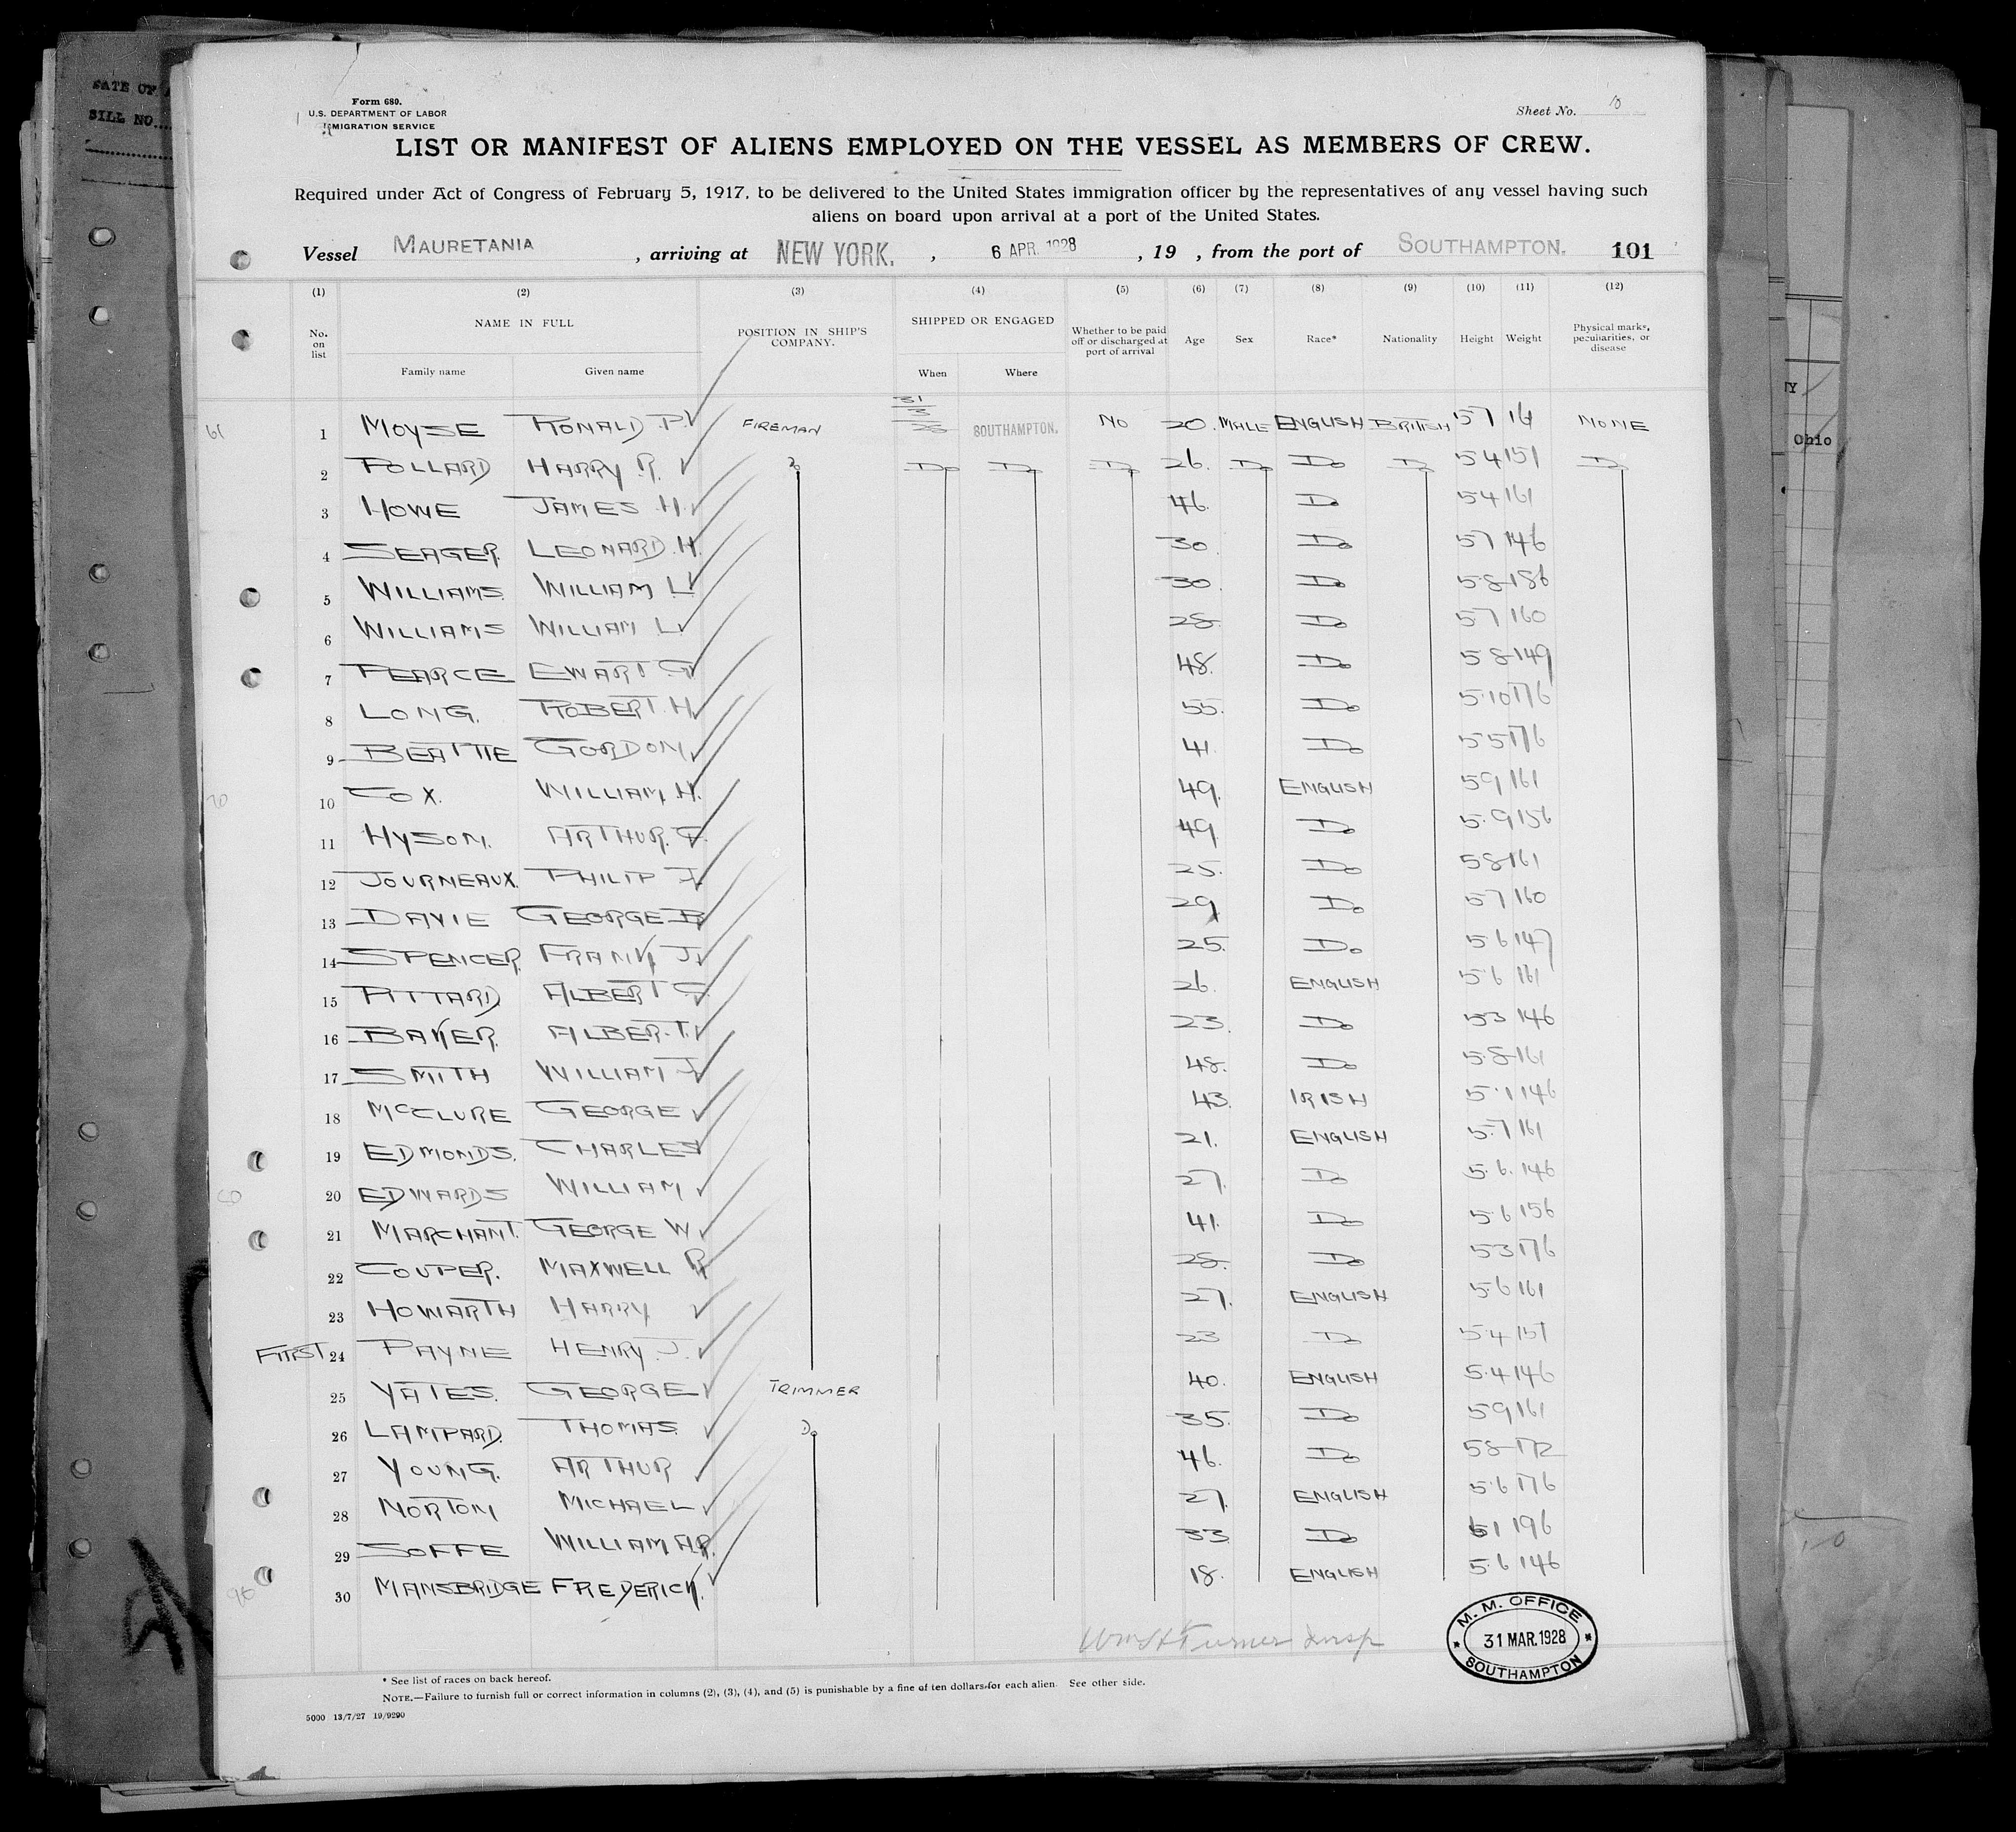 DATE OF
BILL NO....
Form 680.
U.S. DEPARTMENT OF LABOR
IMMIGRATION SERVICE
Sheet No. 10
LIST OR MANIFEST OF ALIENS EMPLOYED ON THE VESSEL AS MEMBERS OF CREW.
Required under Act of Congress of February 5, 1917, to be delivered to the United States immigration officer by the representatives of any vessel having such
aliens on board upon arrival at a port of the United States.
Vessel MAURETANIA, arriving at NEW YORK., 6 APR. 1928, 19 , from the port of SOUTHAMPTON. 101
(1) (2) (3) (4) (5) (6) (7) (8) (9) (10) (11) (12)
No. on list NAME IN FULL Family name Given name POSITION IN SHIP'S COMPANY. SHIPPED OR ENGAGED When Where Whether to be paid off or discharged at port of arrival Age Sex Race* Nationality Height Weight Physical marks, peculiarities, or disease
61 1 MOYSE RONALD P. FIREMAN 31/3/28 SOUTHAMPTON. NO 20. MALE ENGLISH BRITISH 57 NONE
2 POLLARD HARRY R. Do Do Do Do 26. Do Do Do 54 151 Do
3 HOWE JAMES H. 46. Do 54 161
4 SEAGER. LEONARD.H. 30. Do 57 146
5 WILLIAMS. WILLIAM L. 30. Do 58 186
6 WILLIAMS WILLIAM L. 28. Do 57 160
7 PEARCE EWART G 48. Do 58 149
8 LONG. ROBERT.H. 55. Do 5.10 176
9 BEATTIE GORDON. 41. Do 55 176
70 10 COX. WILLIAM.H. 49. ENGLISH 59 161
11 HYSOM. ARTHUR. 49. Do 5.9 156
12 JOURNEAUX. PHILIP F. 25. Do 58 161
13 DAVIE GEORGE B 29 Do 57 160
14 SPENCER. FRANK J. 25. Do 5.6 147
15 PITTARD ALBERT G. 26. ENGLISH 5.6 161
16 BAKER. ALBER.T. 23. Do 53 146
17 SMITH WILLIAM J. 48. Do 5.8 161
18 McCLURE GEORGE 43. IRISH 5.1 146
19 EDMONDS. CHARLES 21. ENGLISH 5.7 161
80 20 EDWARDS WILLIAM 27. Do 5.6. 146
21 MARCHANT. GEORGE W. 41. Do 5.6 156
22 COUPER. MAXWELL R 28. Do 53 176
23 HOWARTH HARRY 27. ENGLISH 5.6 161
FIRST 24 PAYNE HENRY.J. 23 Do 5.4 151
25 YATES. GEORGE TRIMMER 40. ENGLISH 5.4 146
26 LAMPARD. THOMAS. Do 35. Do 59 161
27 YOUNG. ARTHUR 46. Do 58 172
28 NORTON MICHAEL 27. ENGLISH 5.6 176
29 SOFFE WILLIAM A.R. 33 Do 61 196
90 30 MANSBRIDGE FREDERICK. 18. ENGLISH 5.6 146
Wm H Turner Insp
M. M. OFFICE
31 MAR. 1928
SOUTHAMPTON
* See list of races on back hereof.
NOTE.—Failure to furnish full or correct information in columns (2), (3), (4), and (5) is punishable by a fine of ten dollars for each alien. See other side.
5000 13/7/27 19/9290
Ohio